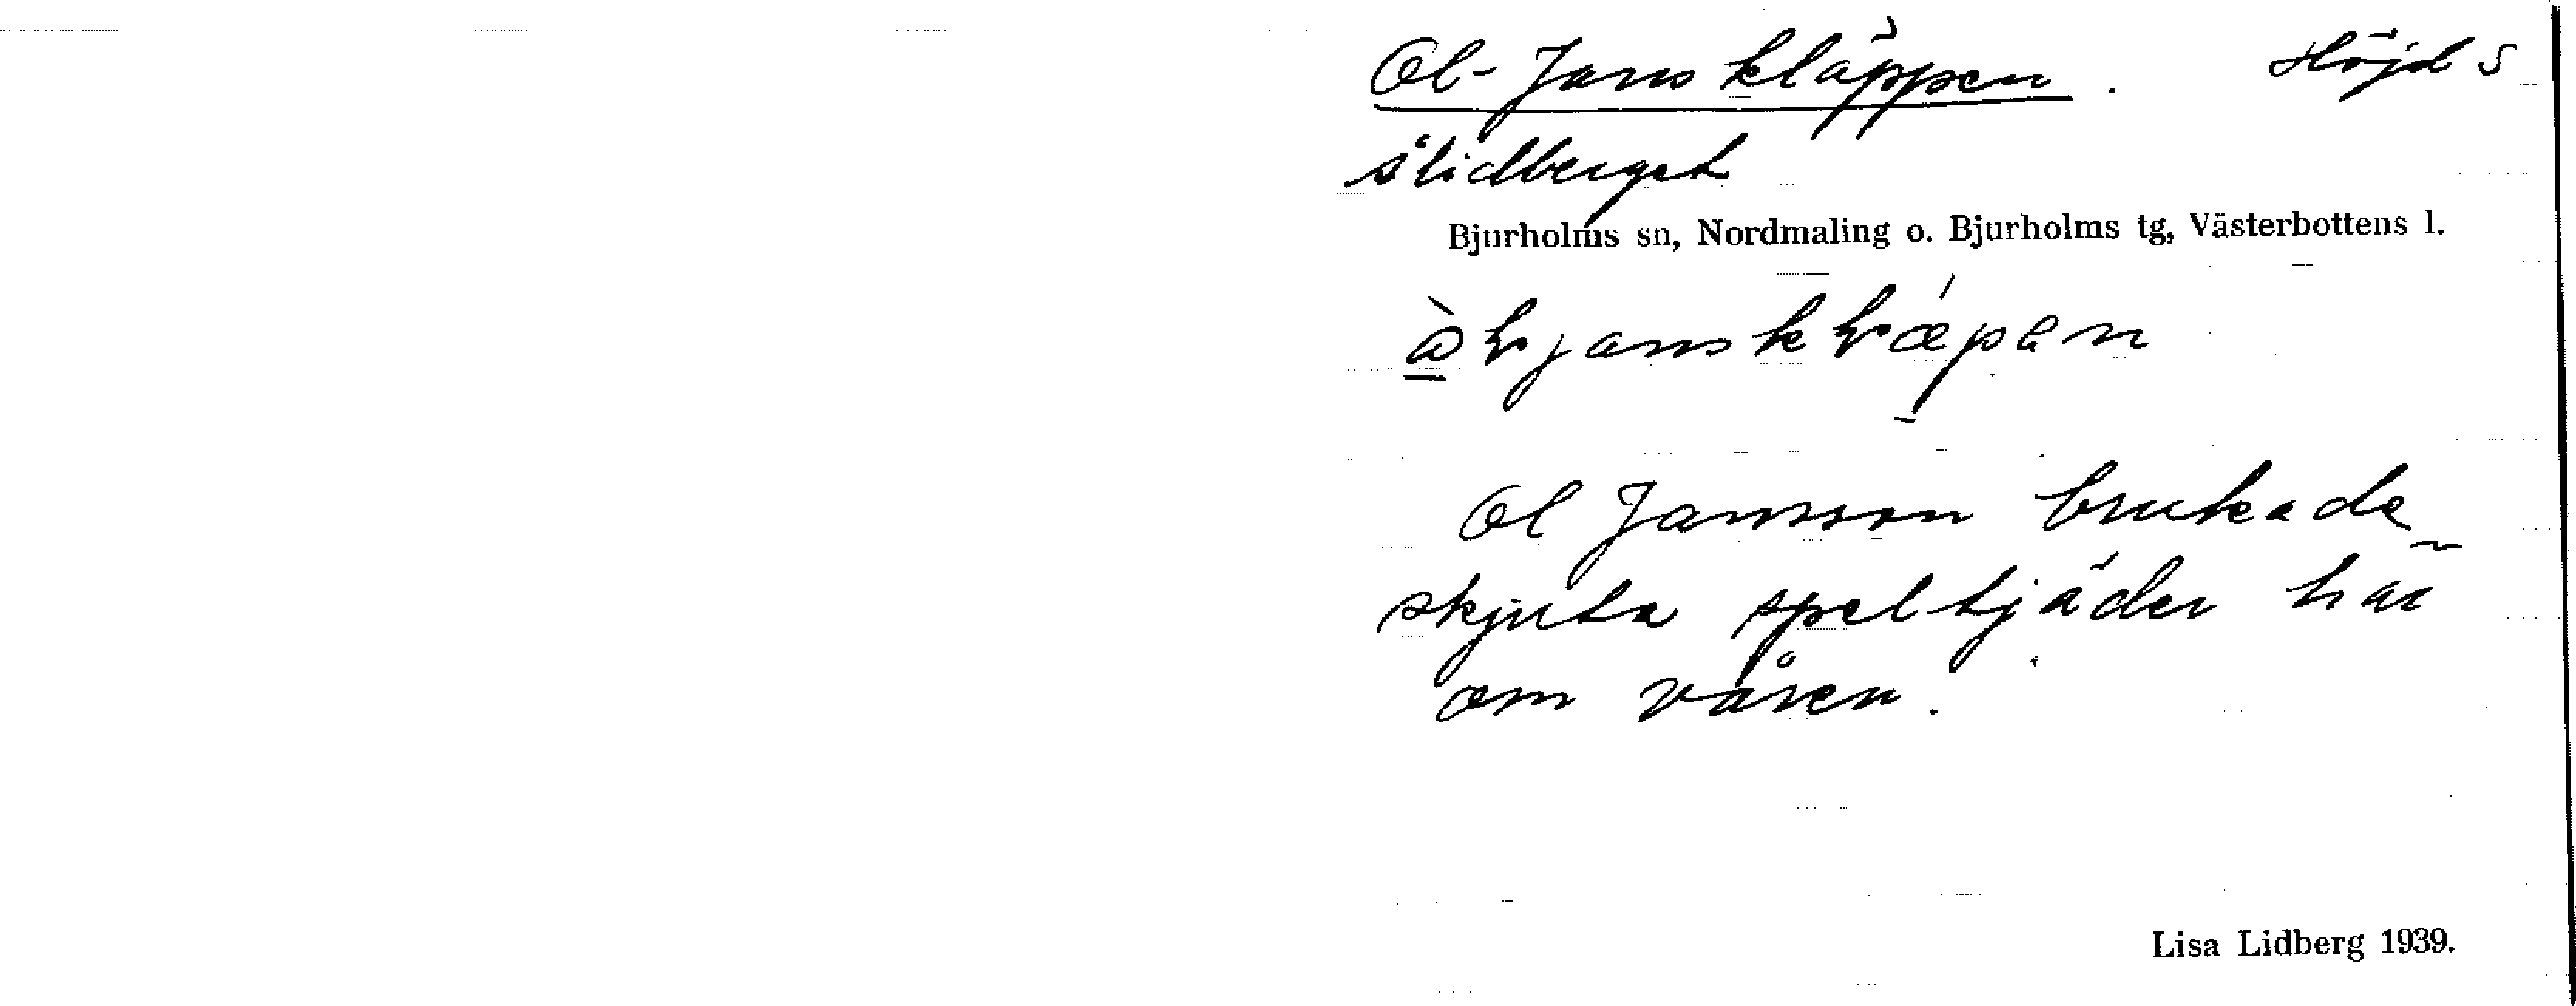 Ol-Janskläppen. Höjd S
slidberget
Bjurholms sn, Nordmaling o. Bjurholms tg, Västerbottens l.
Ol Jansson brukade
skjuta speltjäder här
om våren.
Lisa Lidberg 1939.